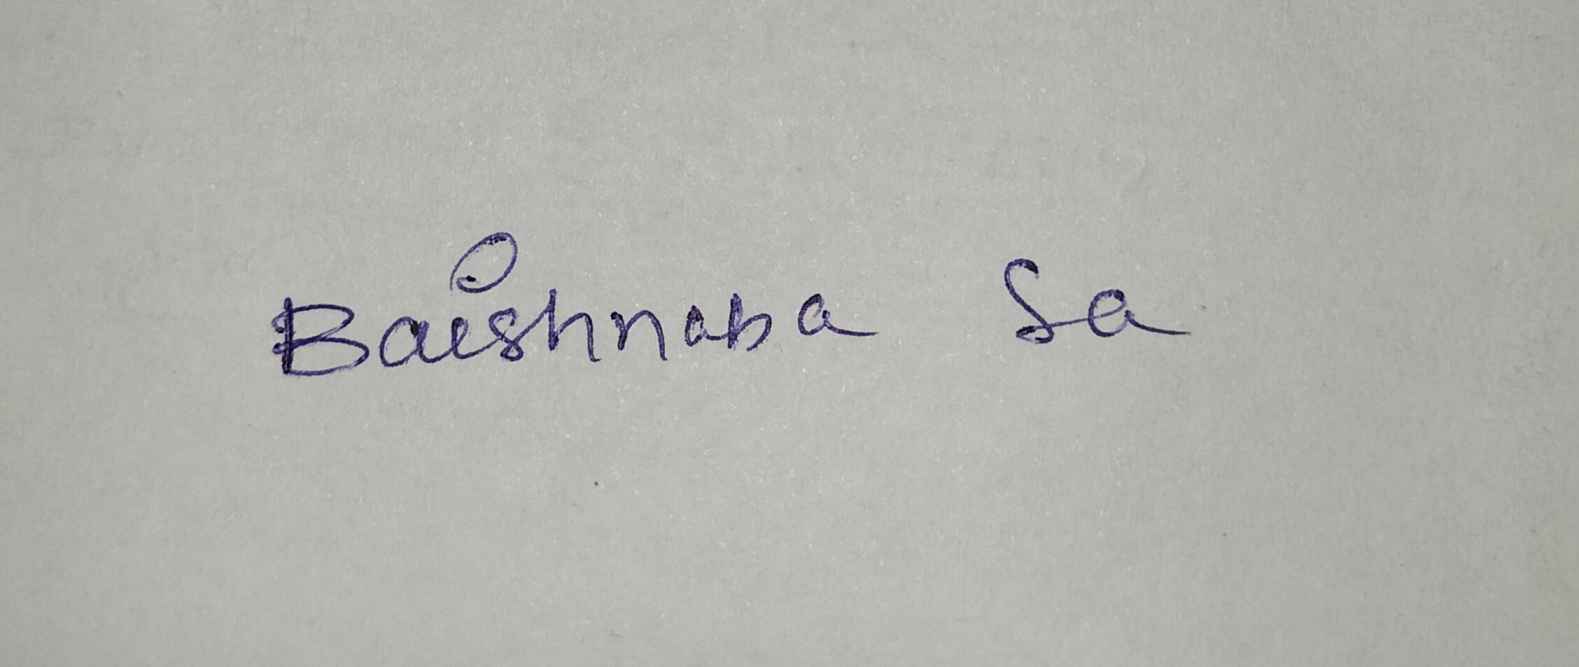 Baishnaba Sa